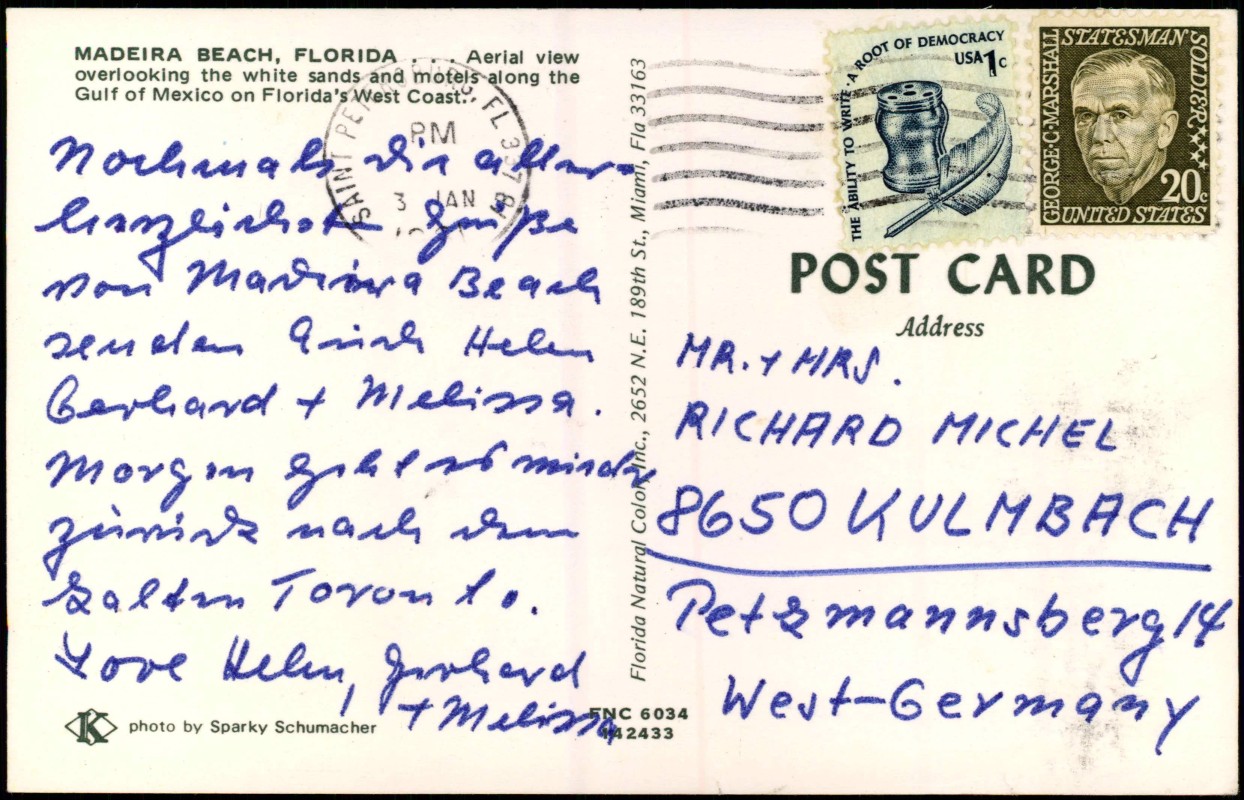 MADEIRA BEACH, FLORIDA . . . Aerial view
overlooking the white sands and motels along the
Gulf of Mexico on Florida's West Coast.
SAINT PETERSBURG, FL
PM
3 JAN
THE ABILITY TO WRITE • A ROOT OF DEMOCRACY
USA 1c
GEORGE • C • MARSHALL
STATESMAN SOLDIER
20c
UNITED STATES
Nochmals die aller-
herzlichste Grüße
von Madeira Beach
senden Euch Helen
Gerhard + Melissa.
Morgen geht es wieder
zurück nach dem
kalten Toronto.
Love Helen, Gerhard
+ Melissa
Florida Natural Color, Inc., 2652 N.E. 189th St., Miami, Fla 33163
POST CARD
Address
MR. + MRS.
RICHARD MICHEL
8650 KULMBACH
Petzmannsberg 14
West-Germany
K
photo by Sparky Schumacher
FNC 6034
142433